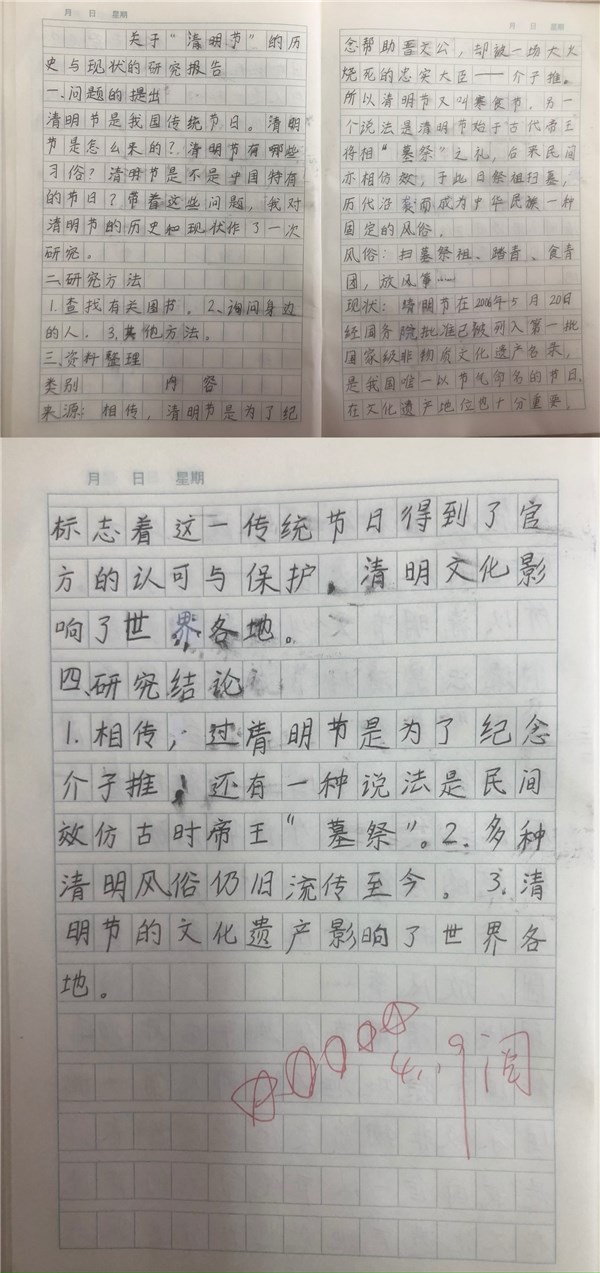 月 日 星期
关于“清明节”的历
史与现状的研究报告
一、问题的提出
清明节是我国传统节日。清明
节是怎么来的？清明节有哪些
习俗？清明节是不是中国特有
的节日？带着这些问题，我对
清明节的历史和现状作了一次
研究。
二研究方法
1.查找有关图书。2、询问身边
的人.3.其他方法。
三.资料整理
类别 内容
来源：相传，清明节是为了纪
月 日 星期
念帮助晋文公，却被一场大火
烧死的忠实大臣——介子推。
所以清明节又叫寒食节。另一
个说法是清明节始于古代帝王
将相“墓祭”之礼，后来民间
亦相仿效，于此日祭祖扫墓，
历代沿袭而成为中华民族一种
固定的风俗。
风俗：扫墓祭祖、踏青、食青
团，放风筝……
现状：清明节在2006年5月20日
经国务院批准已被列入第一批
国家级非物质文化遗产名录，
是我国唯一以节气命名的节日.
在文化遗产地位也十分重要，
月 日 星期
标志着这一传统节日得到了官
方的认可与保护，清明文化影
响了世界各地。
四.研究结论
1.相传，过清明节是为了纪念
介子推，还有一种说法是民间
效仿古时帝王“墓祭”。2.多种
清明风俗仍旧流传至今。3.清
明节的文化遗产影响了世界各
地。
4.9阅